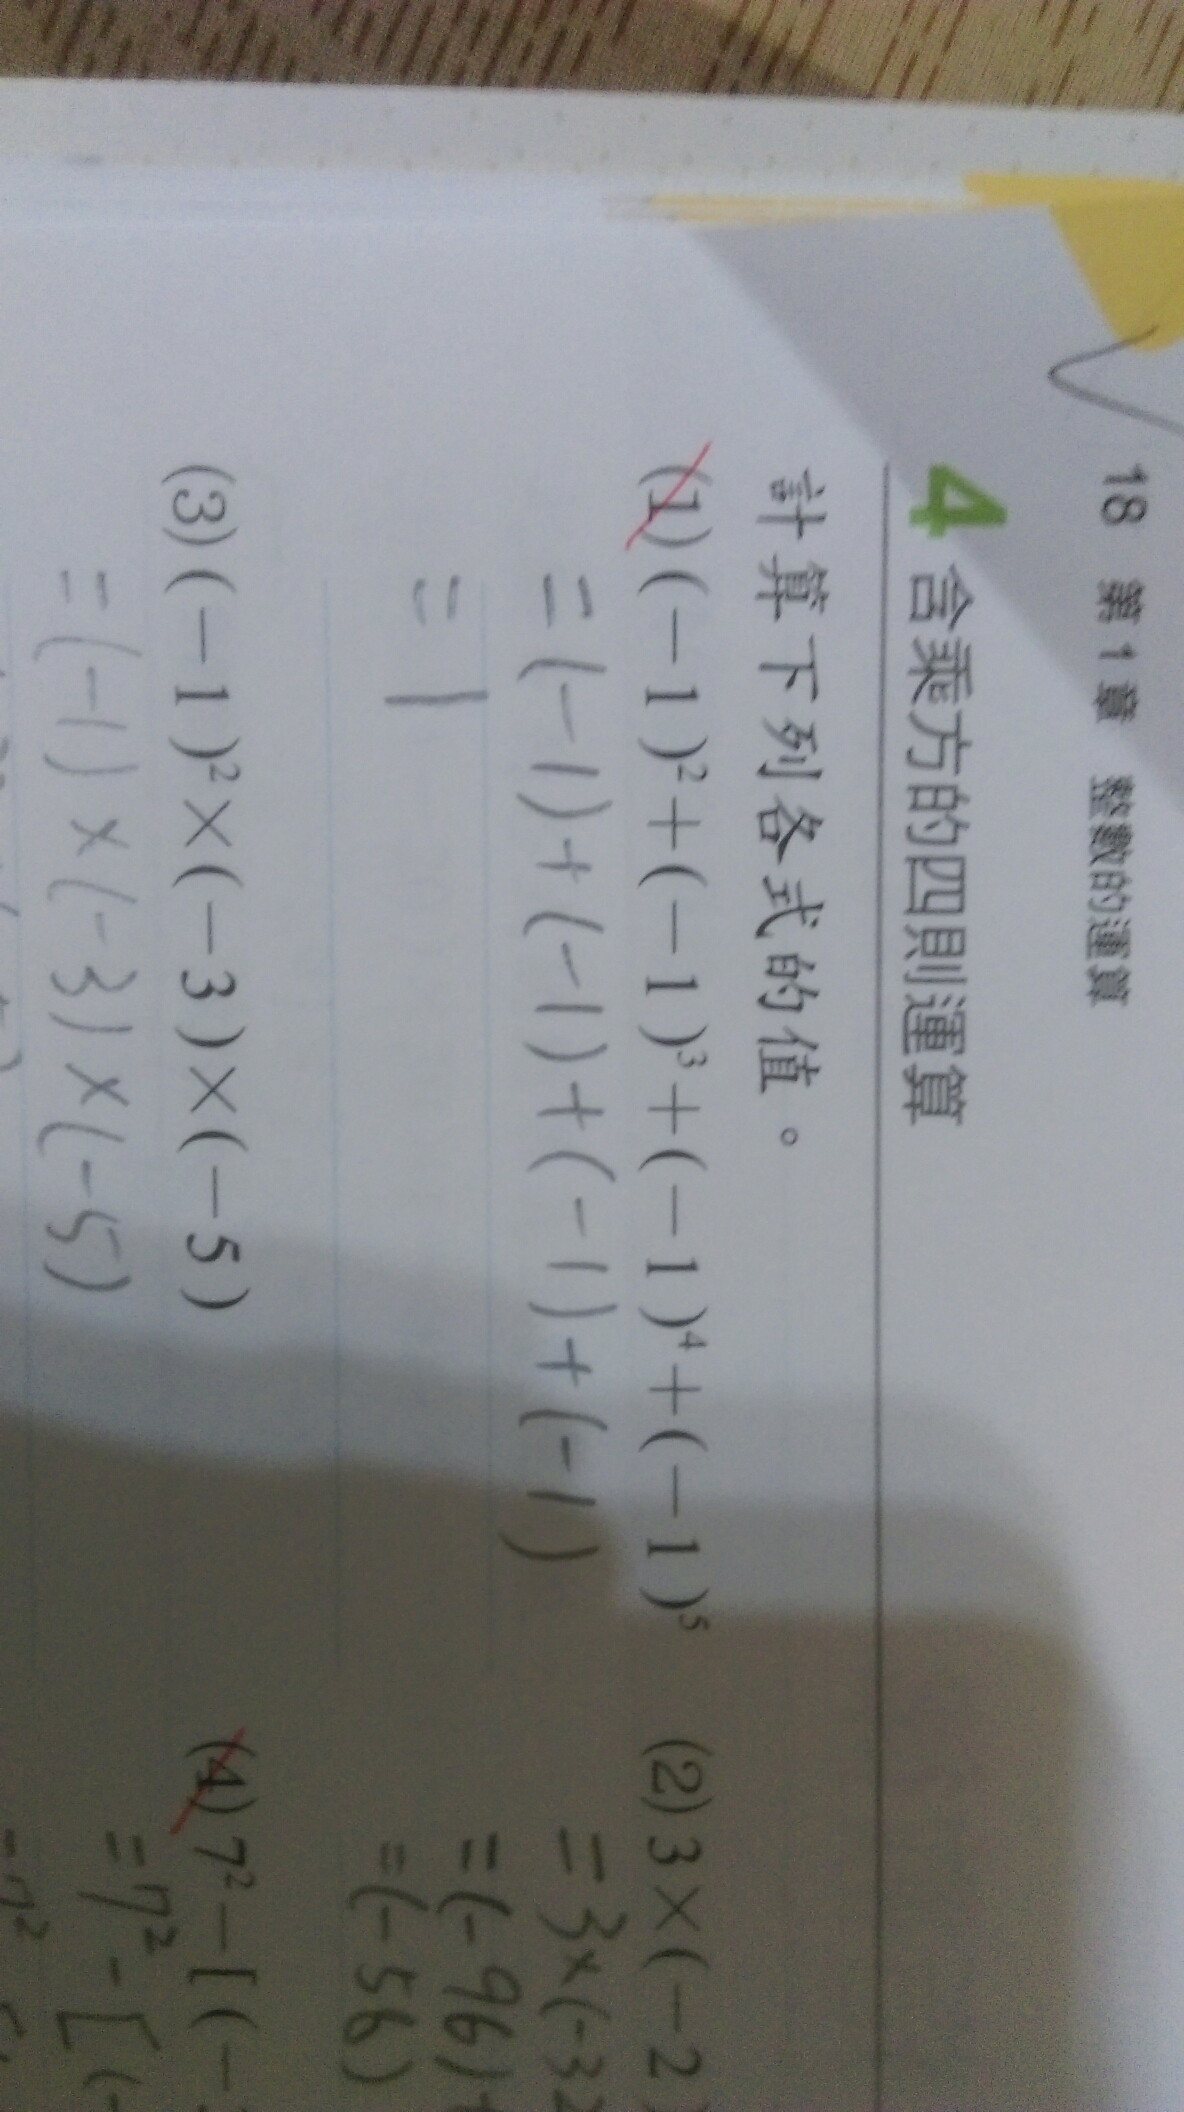 18 第1章 整數的運算
4 含乘方的四則運算
計算下列各式的值。
(1) (－1)²＋(－1)³＋(－1)⁴＋(－1)⁵
= (-1)+(-1)+(-1)+(-1)
= 1
(2) 3×(－2)
= 3×(-32
= (-96)+
= (-56)
(3) (－1)²×(－3)×(－5)
= (-1)×(-3)×(-5)
(4) 7²－[(－
= 7²-[(-
= 7²